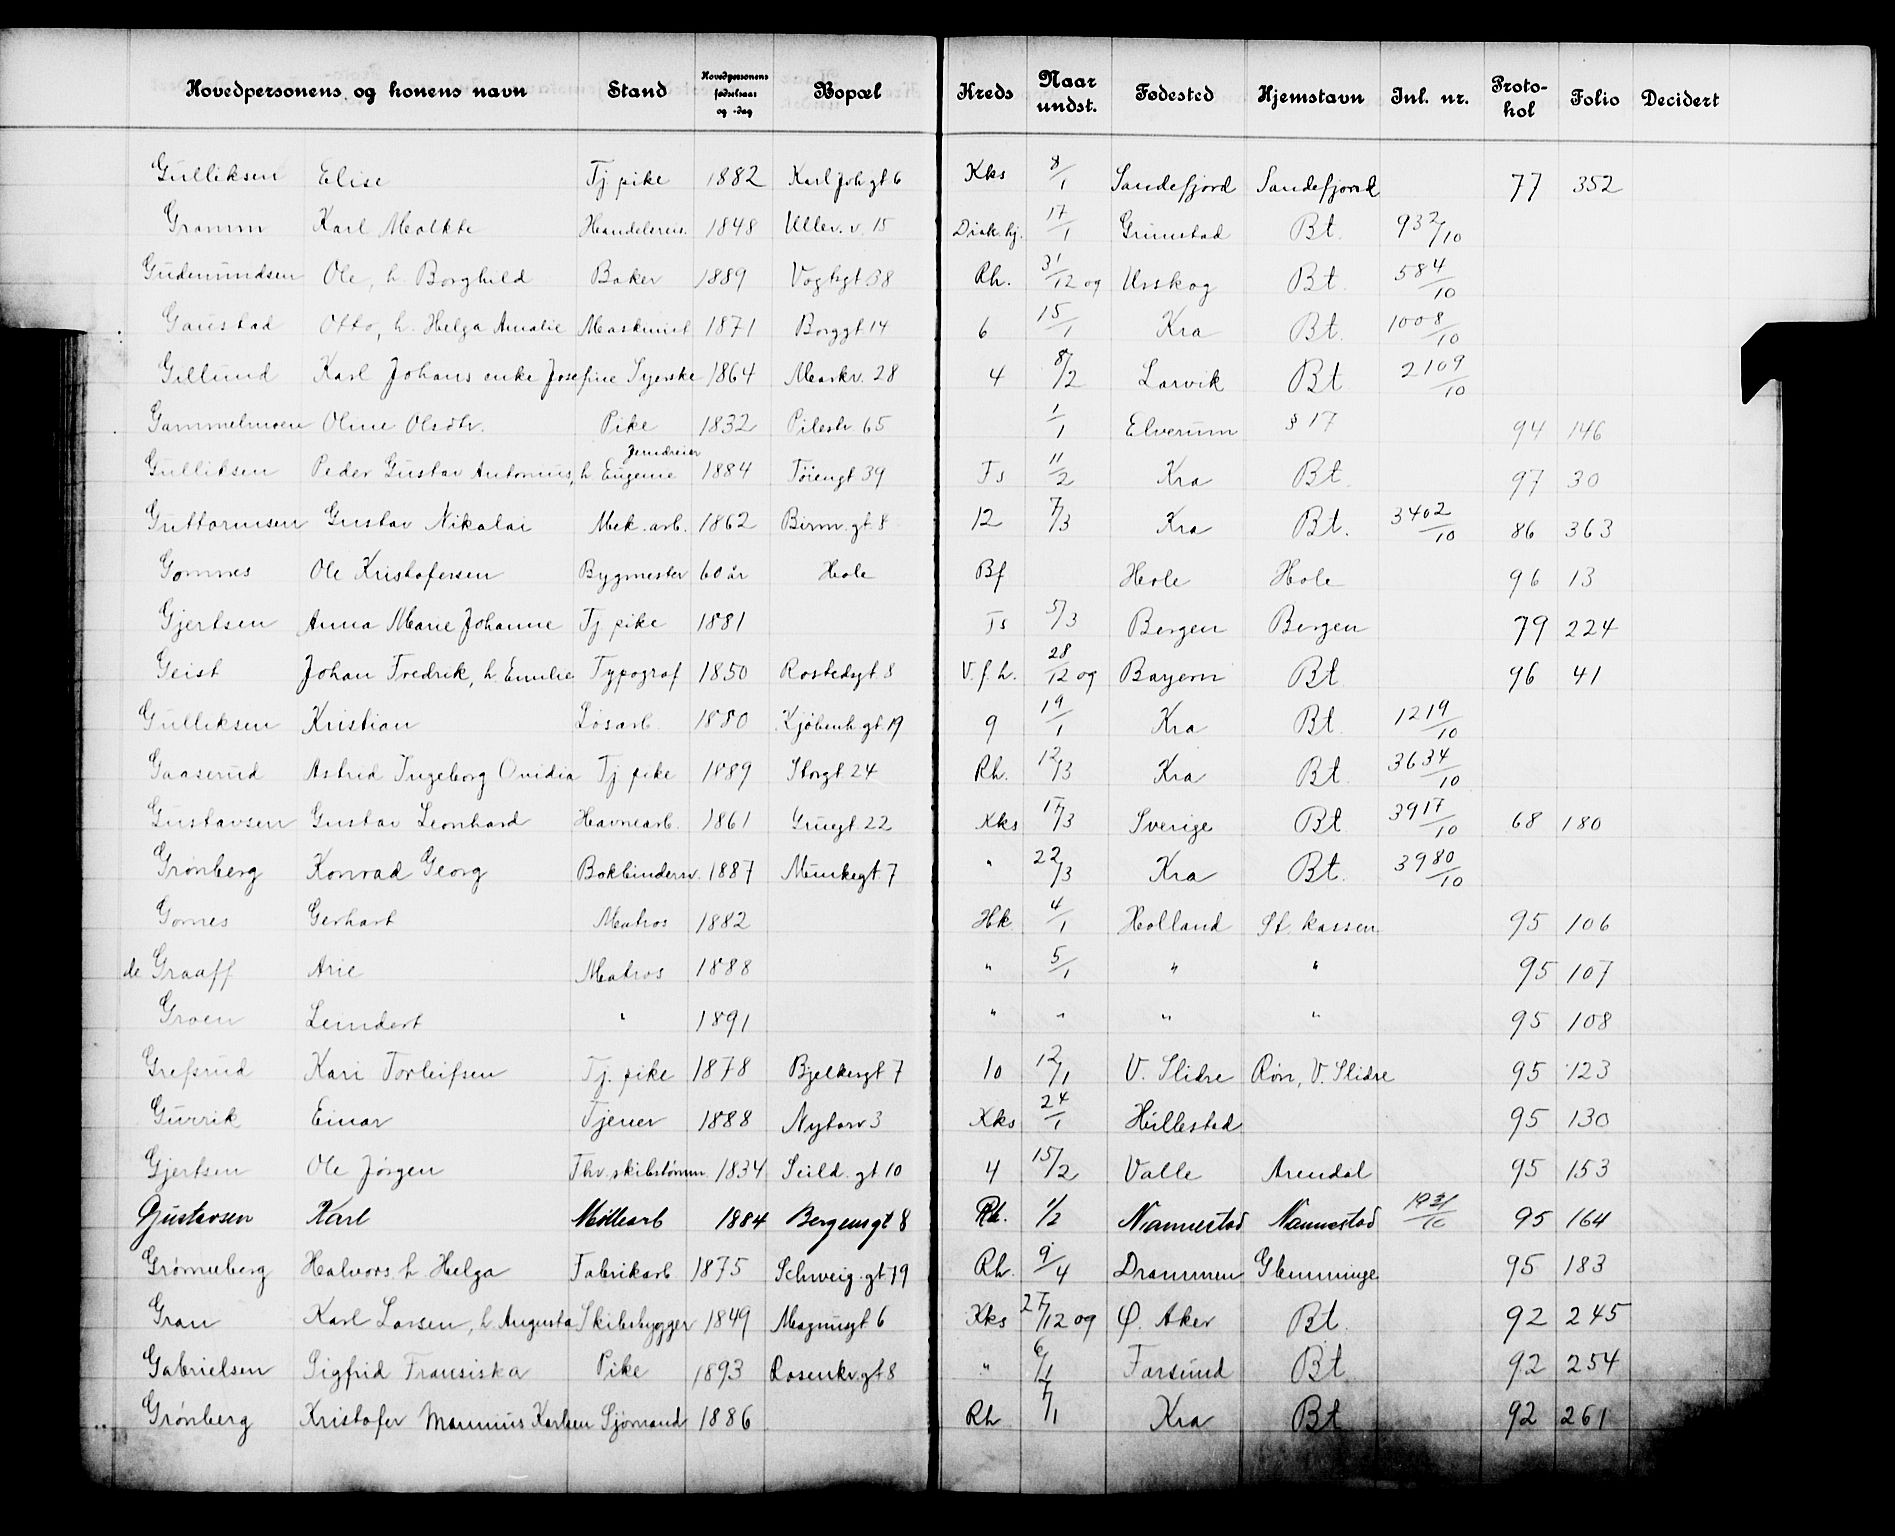 Hovedpersonens og konens navn | Stand | Hovedpersonens fødselsaar og -dag | Bopæl | Kreds | Naar undst. | Fødested | Hjemstavn | Jnl. nr. | Proto-kol | Folio | Decidert
Gulliksen Elise | Tj pike | 1882 | Karl Joh gt 6 | Kks | 8/1 | Sandefjord | Sandefjord | 77 | 352
Gramm Karl Moltke | Handelsreis. | 1848 | Ullev. v. 15 | Diak. hj. | 17/1 | Grimstad | Bt. | 932/10
Gudmundsen Ole, h Borghild | Baker | 1889 | Vogtsgt 38 | Rh. | 31/12 og | Urskog | Bt. | 584/10
Gaustad Otto, h. Helga Amalie | Maskinist | 1871 | Borggt 14 | 6 | 15/1 | Kra | Bt. | 1008/10
Gillund Karl Johans enke Josefine | Syerske | 1864 | Markv. 28 | 4 | 8/2 | Larvik | Bt | 2109/10
Gammelmoen Oline Olsdtr. | Pike | 1832 | Pilestr 65 | 1/1 | Elverum | § 17 | 94 | 146
Gulliksen Peder Gustav Antonius, h Eugenie | Jerndreier | 1884 | Töiengt 39 | Ts | 11/2 | Kra | Bt. | 97 | 30
Guttormsen Gustav Nikolai | Mek. arb. | 1862 | Birm. gt 8 | 12 | 7/3 | Kra | Bt. | 3402/10 | 86 | 363
Gomnes Ole Kristofersen | Bygmester | 60 år | Hole | Bf | Hole | Hole | 96 | 13
Gjertsen Anna Marie Johanne | Tj pike | 1881 | Ts | 5/3 | Bergen | Bergen | 79 | 224
Geist Johan Fredrik, h. Emilie | Typograf | 1850 | Rostedsgt 8 | V. f. h. | 28/12 og | Bayern | Bt | 96 | 41
Gulliksen Kristian | Løsarb. | 1880 | Kjöbenh gt 19 | 9 | 19/1 | Kra | Bt | 1219/10
Gaaserud Astrid Ingeborg Ovidia | Tj pike | 1889 | Storgt 24 | Rh. | 12/3 | Kra | Bt. | 3634/10
Gustavsen Gustav Leonhard | Havnearb. | 1861 | Gruegt 22 | Kks | 17/3 | Sverige | Bt | 3917/10 | 68 | 180
Grønberg Konrad Georg | Bokbindersv. | 1887 | Munkegt 7 | " | 22/3 | Kra | Bt. | 3980/10
Gomes Gerhart | Matros | 1882 | Hk | 4/1 | Holland | St. kassen | 95 | 106
de Graaff Arie | Matros | 1888 | " | 5/1 | " | " | 95 | 107
Groen Leindert | " | 1891 | " | " | " | " | 95 | 108
Grefsrud Kari Torleifsen | Tj. pike | 1878 | Bjelkesgt 7 | 10 | 12/1 | V. Slidre | Røn, V. Slidre | 95 | 123
Gurrik Einar | Tjener | 1888 | Nytorv 3 | Kks | 24/1 | Hillestad | 95 | 130
Gjertsen Ole Jørgen | Fhv. skibstömm. | 1834 | Seild. gt 10 | 4 | 15/2 | Valle | Arendal | 95 | 153
Gustavsen Karl | Møllearb | 1884 | Bergensgt 8 | Rh. | 1/2 | Nannestad | Nannestad | 1931/10 | 95 | 164
Grønneberg Halvors. h Helga | Fabrikarb. | 1875 | Schweig. gt 79 | Rh. | 9/4 | Drammen | Glemminge | 95 | 183
Gran Karl Larsen, h. Augusta | Skibsbygger | 1849 | Magnusgt 6 | Kks | 27/12 og | Ø. Aker | Bt. | 92 | 245
Gabrielsen Sigfrid Fransiska | Pike | 1893 | Rosenkr. gt 8 | " | 6/1 | Farsund | Bt | 92 | 254
Grønberg Kristofer Marinius Karlsen | Sjømand | 1886 | Rh | 7/1 | Kra | Bt | 92 | 261